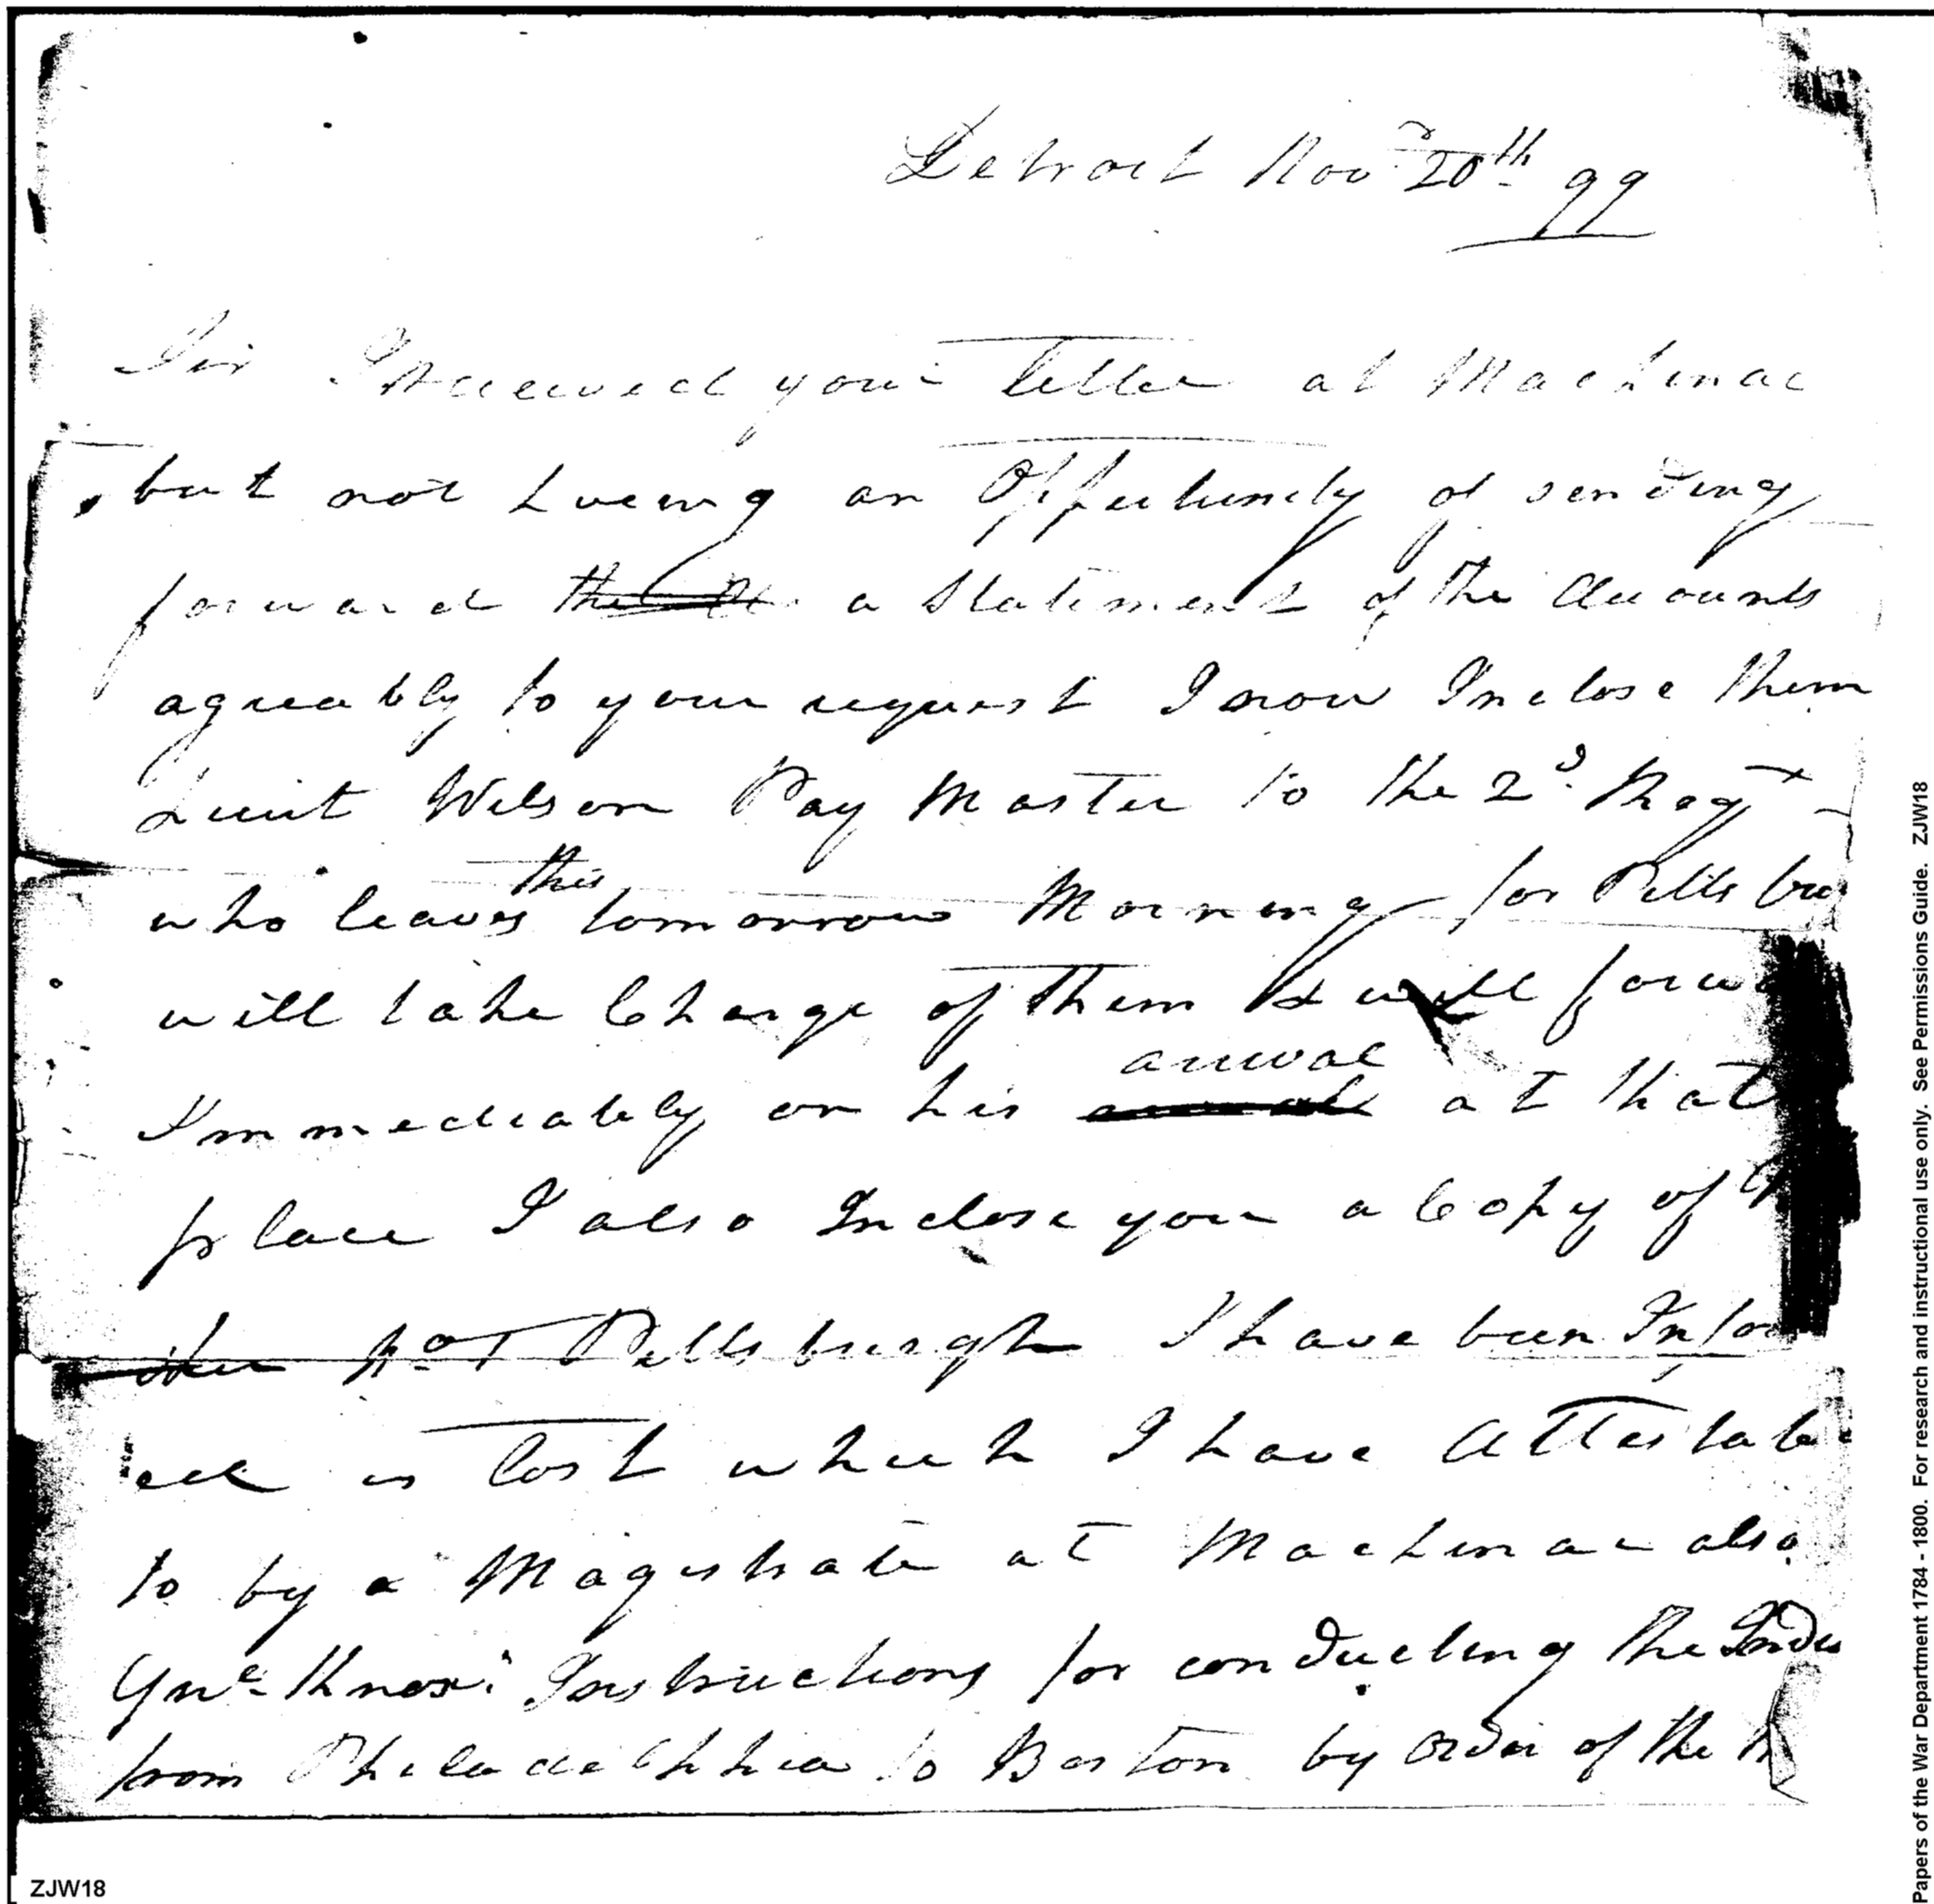 Detroit Nov 20th 99
Sir I received your letter at Mackinac
but not haveing an Oppertunity of sending
forward a Statement of the Accounts
agreably to your request I now Inclose them
Lieut Wilson Pay Master to the 2d Regt
who leaves this tomorrow Morning for Pittsbu
will take Charge of them & will forwa
Immediately on his arival at that
place I also Inclose you a Copy of
Pittsburgh I have been Infor
is lost which I have Attested
to by a Magistrate at Mackinac also
Gnl Knox's Instructions for conducting the
from Philadelphia to Boston by Order of the
ZJW18
Papers of the War Department 1784 - 1800. For research and instructional use only. See Permissions Guide. ZJW18